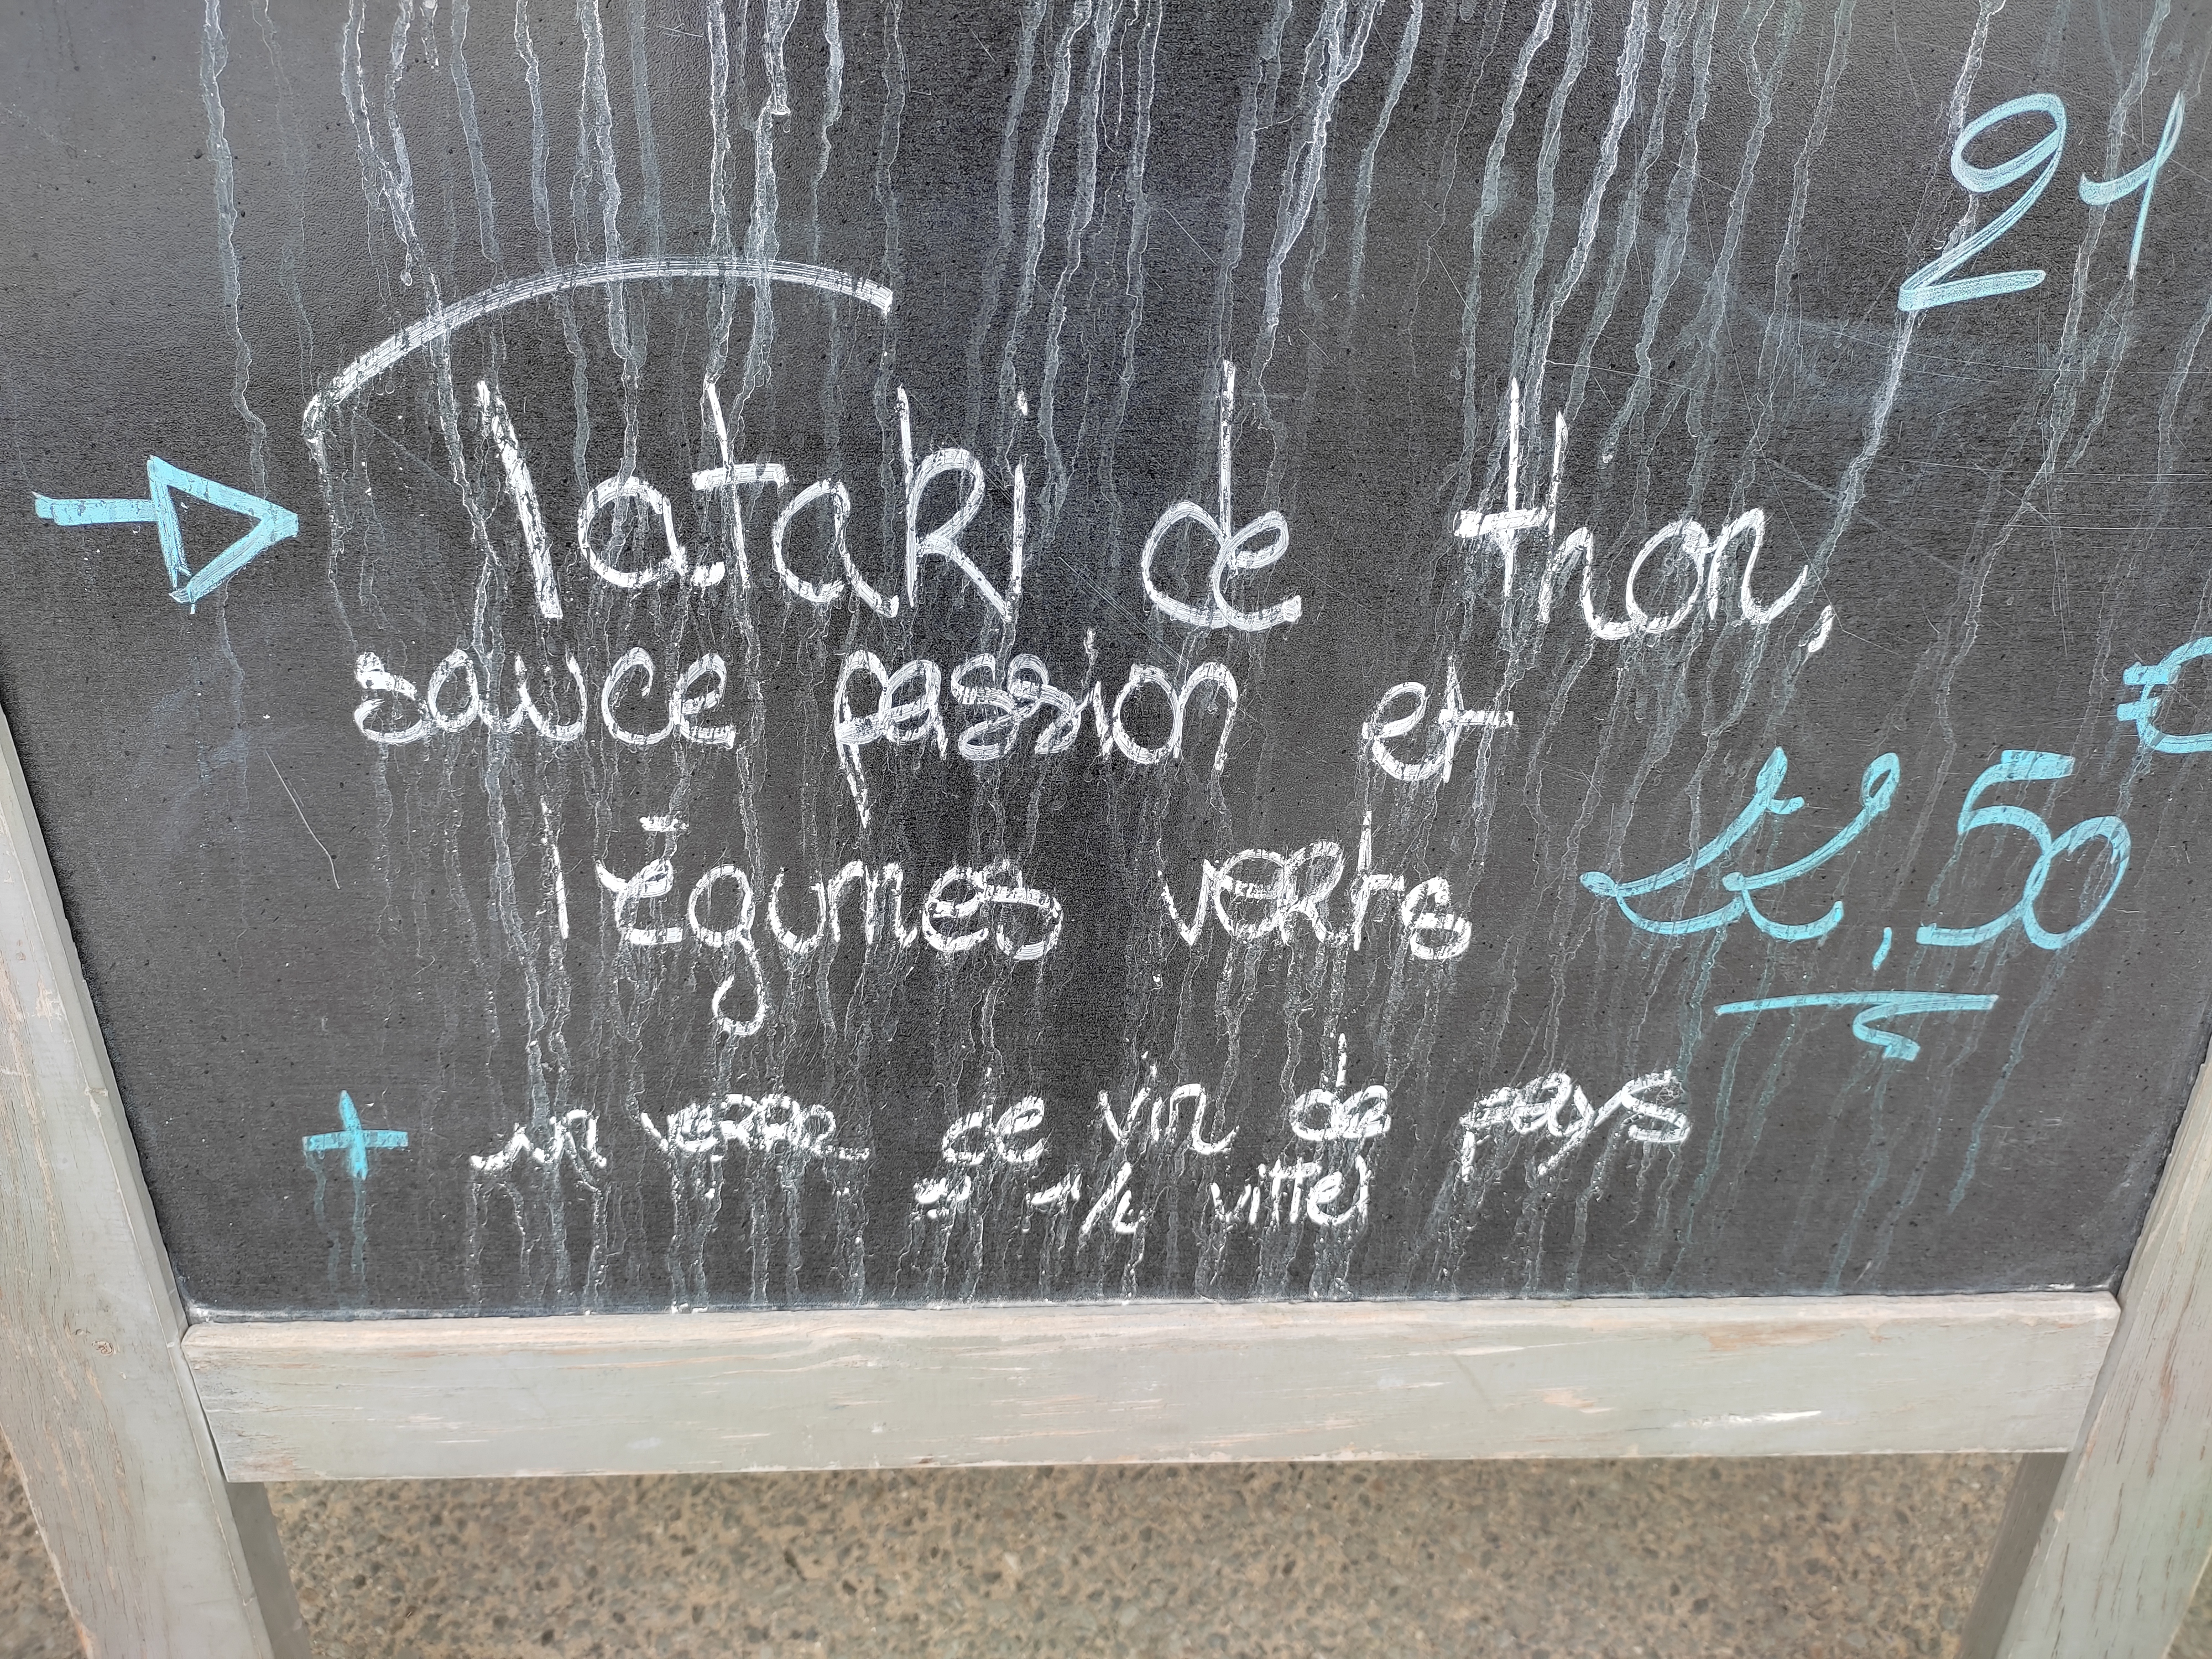 21
Tataki de thon,
sauce passion et
légumes verts
22,50 €
+ un verre de vin de pays
vittel